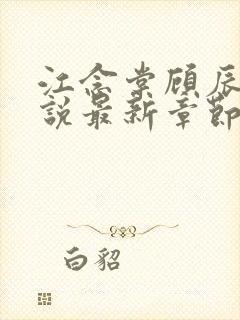 江念棠顾辰
说最新章节
白貂